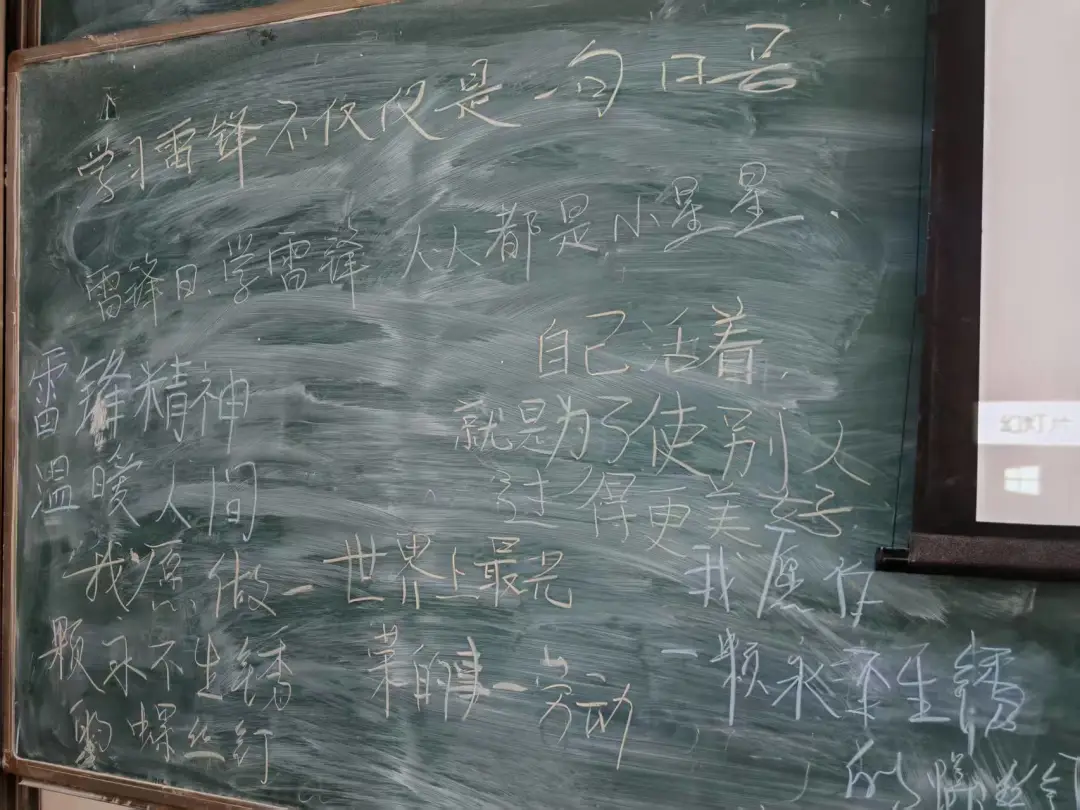 学习雷锋不仅仅是一句口号
雷锋日、学雷锋 人人都是小星星
自己活着
就是为了使别人
过得更美好
雷锋精神
温暖人间
我愿做一
颗永不生锈
的螺丝钉
世界上最光
荣的事一劳动
我愿作
一颗永不生锈
的螺丝钉
幻灯片